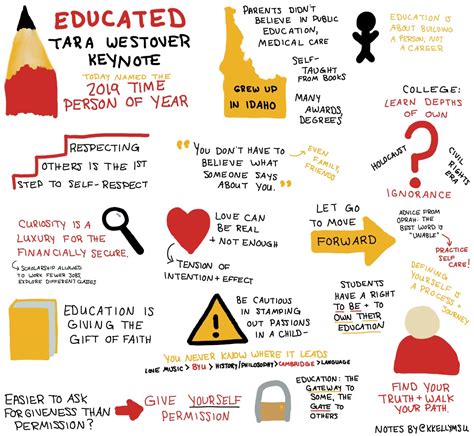 EDUCATED
TARA WESTOVER
KEYNOTE
TODAY NAMED THE
2019 TIME
PERSON OF YEAR
PARENTS DIDN'T
BELIEVE IN PUBLIC
EDUCATION,
MEDICAL CARE
SELF-
TAUGHT
FROM BOOKS
MANY
AWARDS,
DEGREES
GREW UP
IN IDAHO
EDUCATION IS
ABOUT BUILDING
A PERSON, NOT
A CAREER
RESPECTING
OTHERS IS THE 1ST
STEP TO SELF-RESPECT
"YOU DON'T HAVE TO
BELIEVE WHAT
SOMEONE SAYS
ABOUT YOU."
EVEN
FAMILY,
FRIENDS
COLLEGE:
LEARN DEPTHS
OF OWN
HOLOCAUST
CIVIL
RIGHTS
ERA
IGNORANCE
CURIOSITY IS A
LUXURY FOR THE
FINANCIALLY SECURE.
SCHOLARSHIP ALLOWED
TO WORK FEWER JOBS,
EXPLORE DIFFERENT CLASSES
LOVE CAN
BE REAL
+ NOT ENOUGH
TENSION OF
INTENTION + EFFECT
LET GO
TO MOVE
FORWARD
ADVICE FROM
OPRAH: THE
BEST WORD IS
"UNABLE"
PRACTICE
SELF
CARE!
EDUCATION IS
GIVING THE
GIFT OF FAITH
BE CAUTIOUS
IN STAMPING
OUT PASSIONS
IN A CHILD-
YOU NEVER KNOW WHERE IT LEADS
LOVE MUSIC > BYU > HISTORY/PHILOSOPHY > CAMBRIDGE > LANGUAGE
STUDENTS
HAVE A RIGHT
TO BE + TO
OWN THEIR
EDUCATION
DEFINING
YOURSELF IS
A PROCESS +
JOURNEY
FIND YOUR
TRUTH + WALK
YOUR PATH.
EASIER TO ASK
FORGIVENESS THAN
PERMISSION?
GIVE YOURSELF
PERMISSION
EDUCATION: THE
GATEWAY TO
SOME, THE
GATE TO
OTHERS
NOTES BY @KKELLYMSU